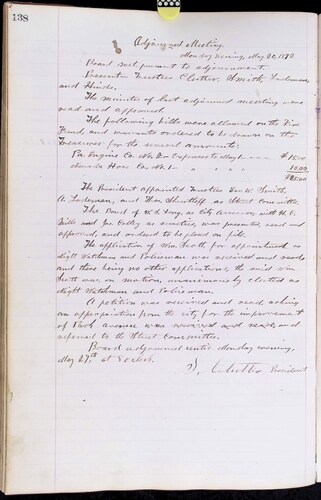 138
Adjourned Meeting.
Monday evening, May 20, 1878
Board met pursuant to adjournment.
Present Trustees Clutter, Smith,
and Hinds.
The minutes of last adjourned meeting was
read and approved.
The following bills were allowed on the Fire
Fund, and warrants ordered to be drawn on the
Treasurer for the several amounts:
Pa. Engine Co. No. 2 Expenses to May 1 $15.00
Hose Co. No. 1 10.00
$25.00
The President appointed Trustees Wm. W. Smith,
A. and Thos. as Street Committee.
The Bond of W. S. Long, as City Assessor with H. C.
and Jas. as sureties, was presented, read and
approved, and ordered to be placed on file.
The application of Wm. Scott for appointment as
Night Watchman and Policeman was received and read
and there being no other applications, the said Wm.
Scott was, on motion, unanimously elected as
Night Watchman and Policeman.
A petition was received and read, asking
an appropriation from the city, for the improvement
of Park Avenue was received and read, and
referred to the Street Committee.
Board adjourned until Monday evening,
May 27th at 8 o'clock.
Clutter President